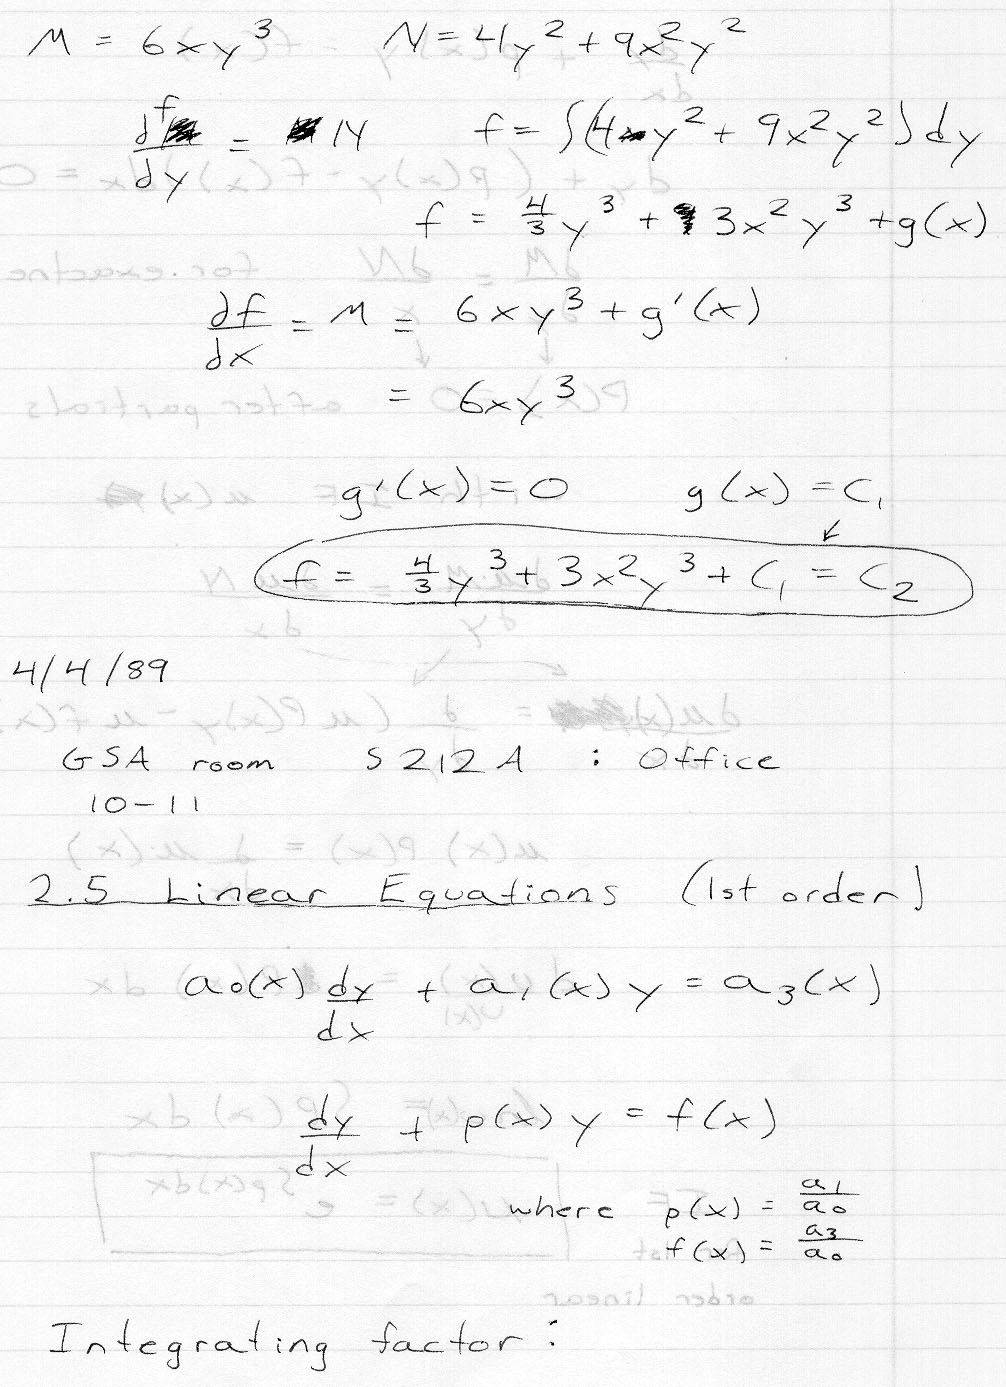 M = 6xy³ N = 4y² + 9x²y²
df/dy = N f = ∫(4y² + 9x²y²)dy
f = 4/3 y³ + 3x²y³ + g(x)
∂f/dx = M = 6xy³ + g'(x)
= 6xy³
g'(x) = 0 g(x) = C₁
f = 4/3 y³ + 3x²y³ + C₁ = C₂
4/4/89
GSA room S212A : Office
10-11
2.5 Linear Equations (1st order)
a₀(x) dy/dx + a₁(x) y = a₃(x)
dy/dx + p(x) y = f(x)
where p(x) = a₁/a₀
f(x) = a₃/a₀
Integrating factor: